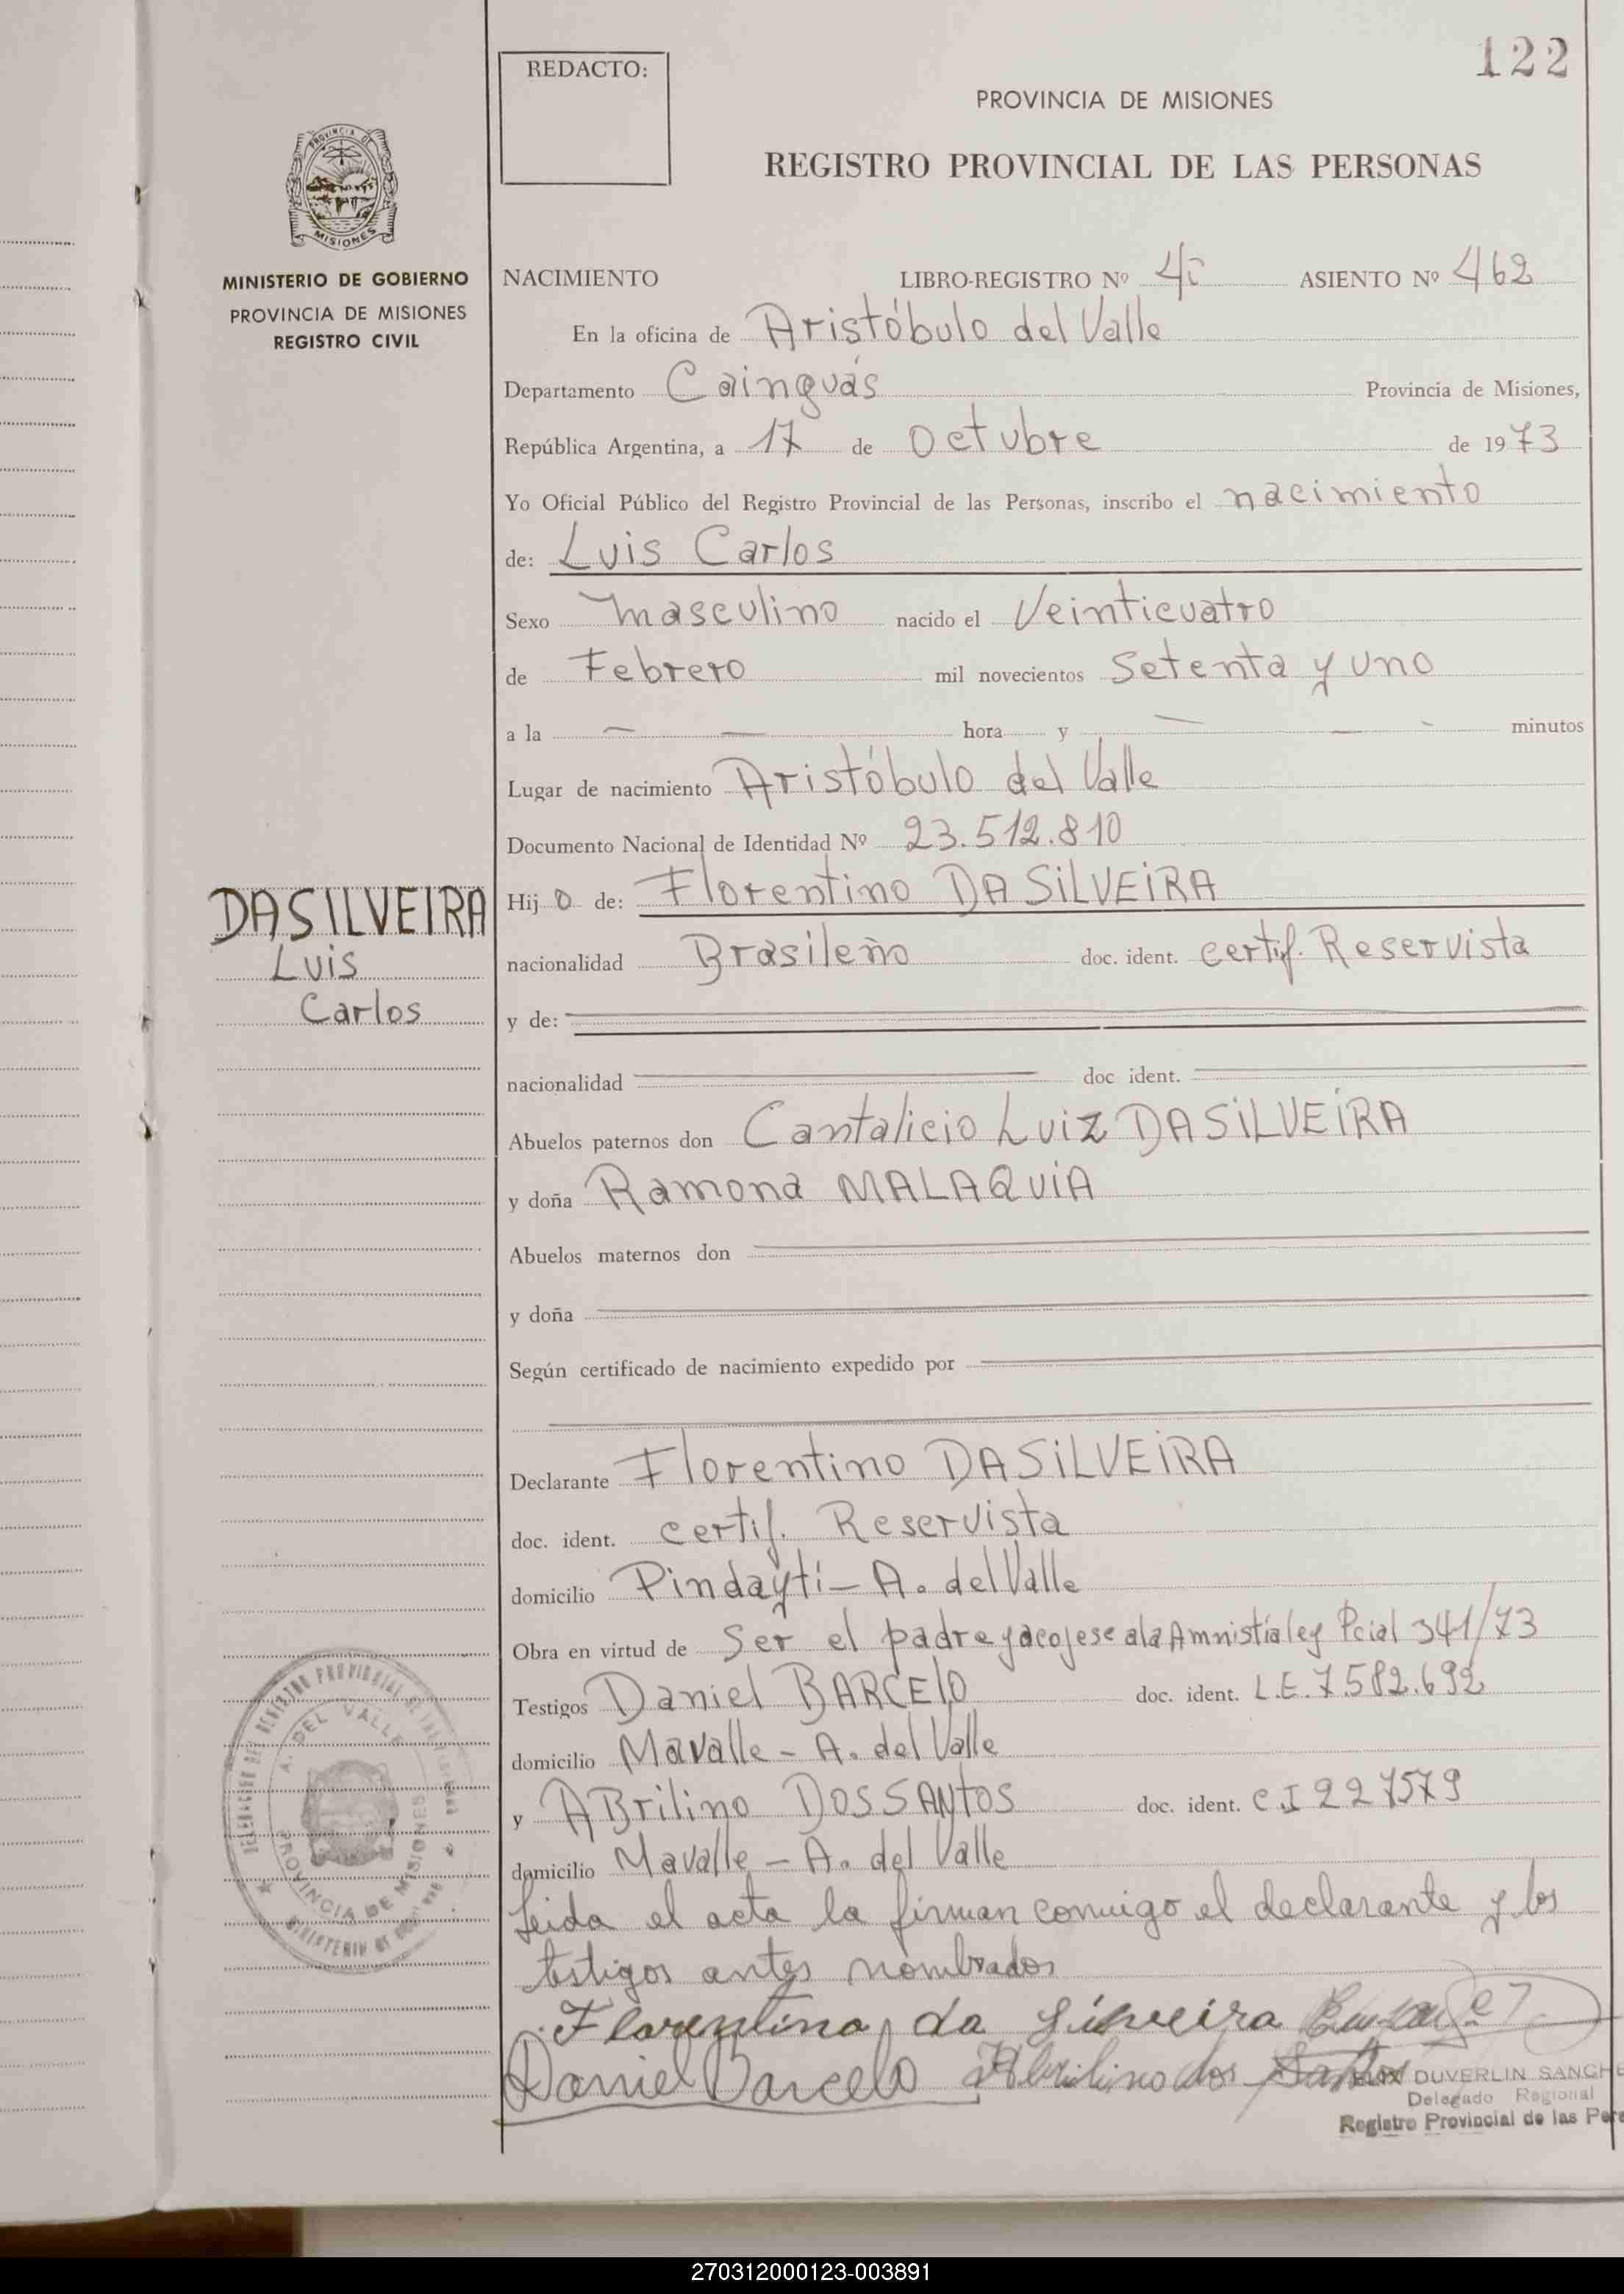 122
REDACTO:
PROVINCIA DE MISIONES
REGISTRO PROVINCIAL DE LAS PERSONAS
PROVINCIA DE
MISIONES
MINISTERIO DE GOBIERNO
PROVINCIA DE MISIONES
REGISTRO CIVIL
NACIMIENTO LIBRO-REGISTRO Nº ASIENTO Nº 462
En la oficina de Aristóbulo del Valle
Departamento Cainguás Provincia de Misiones,
República Argentina, a 17 de Octubre de 1973
Yo Oficial Público del Registro Provincial de las Personas, inscribo el nacimiento
de: Luis Carlos
Sexo masculino nacido el Veinticuatro
de Febrero mil novecientos Setenta y uno
a la — — hora y — — - minutos
Lugar de nacimiento Aristóbulo del Valle
Documento Nacional de Identidad Nº 23.512.810
DASILVEIRA
Luis
Carlos
Hijo de: Florentino DASiLVEiRA
nacionalidad Brasileño doc. ident. certif. Reservista
y de:
nacionalidad doc ident.
Abuelos paternos don Cantalicio Luiz DASiLVEiRA
y doña Ramona MALAQUiA
Abuelos maternos don
y doña
Según certificado de nacimiento expedido por
Declarante Florentino DASiLVEiRA
doc. ident. certif. Reservista
domicilio Pindaytí - A. del Valle
Obra en virtud de Ser el padre y acojese a la Amnistía ley Pcial 341/73
Testigos Daniel BARCELO doc. ident. L.E. 7.582.692
domicilio Mavalle - A. del Valle
y ABrilino DOSSANtOS doc. ident. C.I 227579
domicilio Mavalle - A. del Valle
Leida el acta la firman conmigo el declarante y los
testigos antes nombrados
Florentino da Silveira
Daniel Barcelo Abrilino dos Santos
DUVERLIN SANCHE
Delegado Regional
Registro Provincial de las Pers
A. DEL VALLE
PROVINCIA DE MISIONES
270312000123-003891